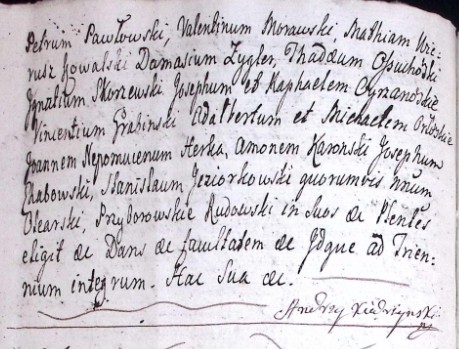 Petrum Pawłowski, Valentinum Morawski, Mathiam Wie-
rusz Kowalski Damasium Zygler, Thaddæum Osuchowski
Ignatium Skorzewski Josephum et Raphaelem
Vincentium Grabinski Adalbertum et Michaelem
Joannem Nepomucenum Herka, Amonem Karonski Josephum
Stanislaum Jeziorkowski quorumvis unum
Olearski, Przyborowskie Rudowski in suos &c Plentes
eligit &c Dans &c facultatem &c Idque ad Trien-
nium integrum. Hac sua &c.
Andrzy Kiedrzynski